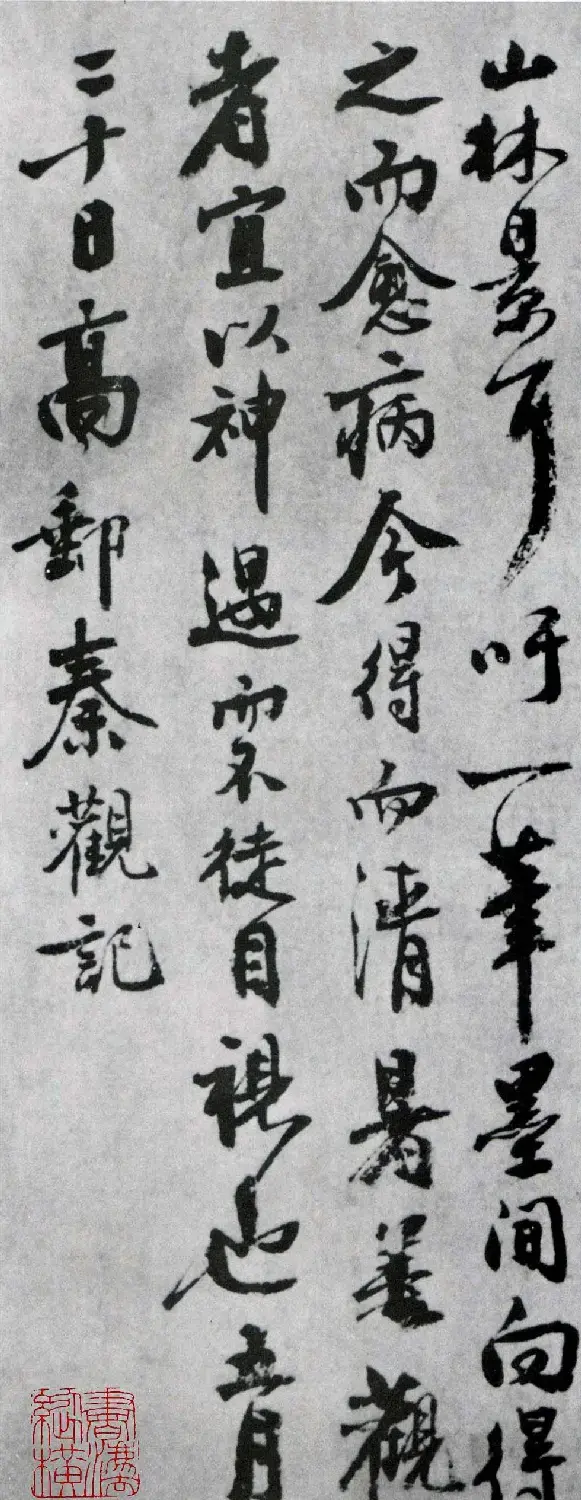 山林景耳吁一筆墨間向得
之而愈病今得而清暑蓋觀
者宜以神遇而不徒目視也五月
二十日高郵秦觀記
書灋縱橫